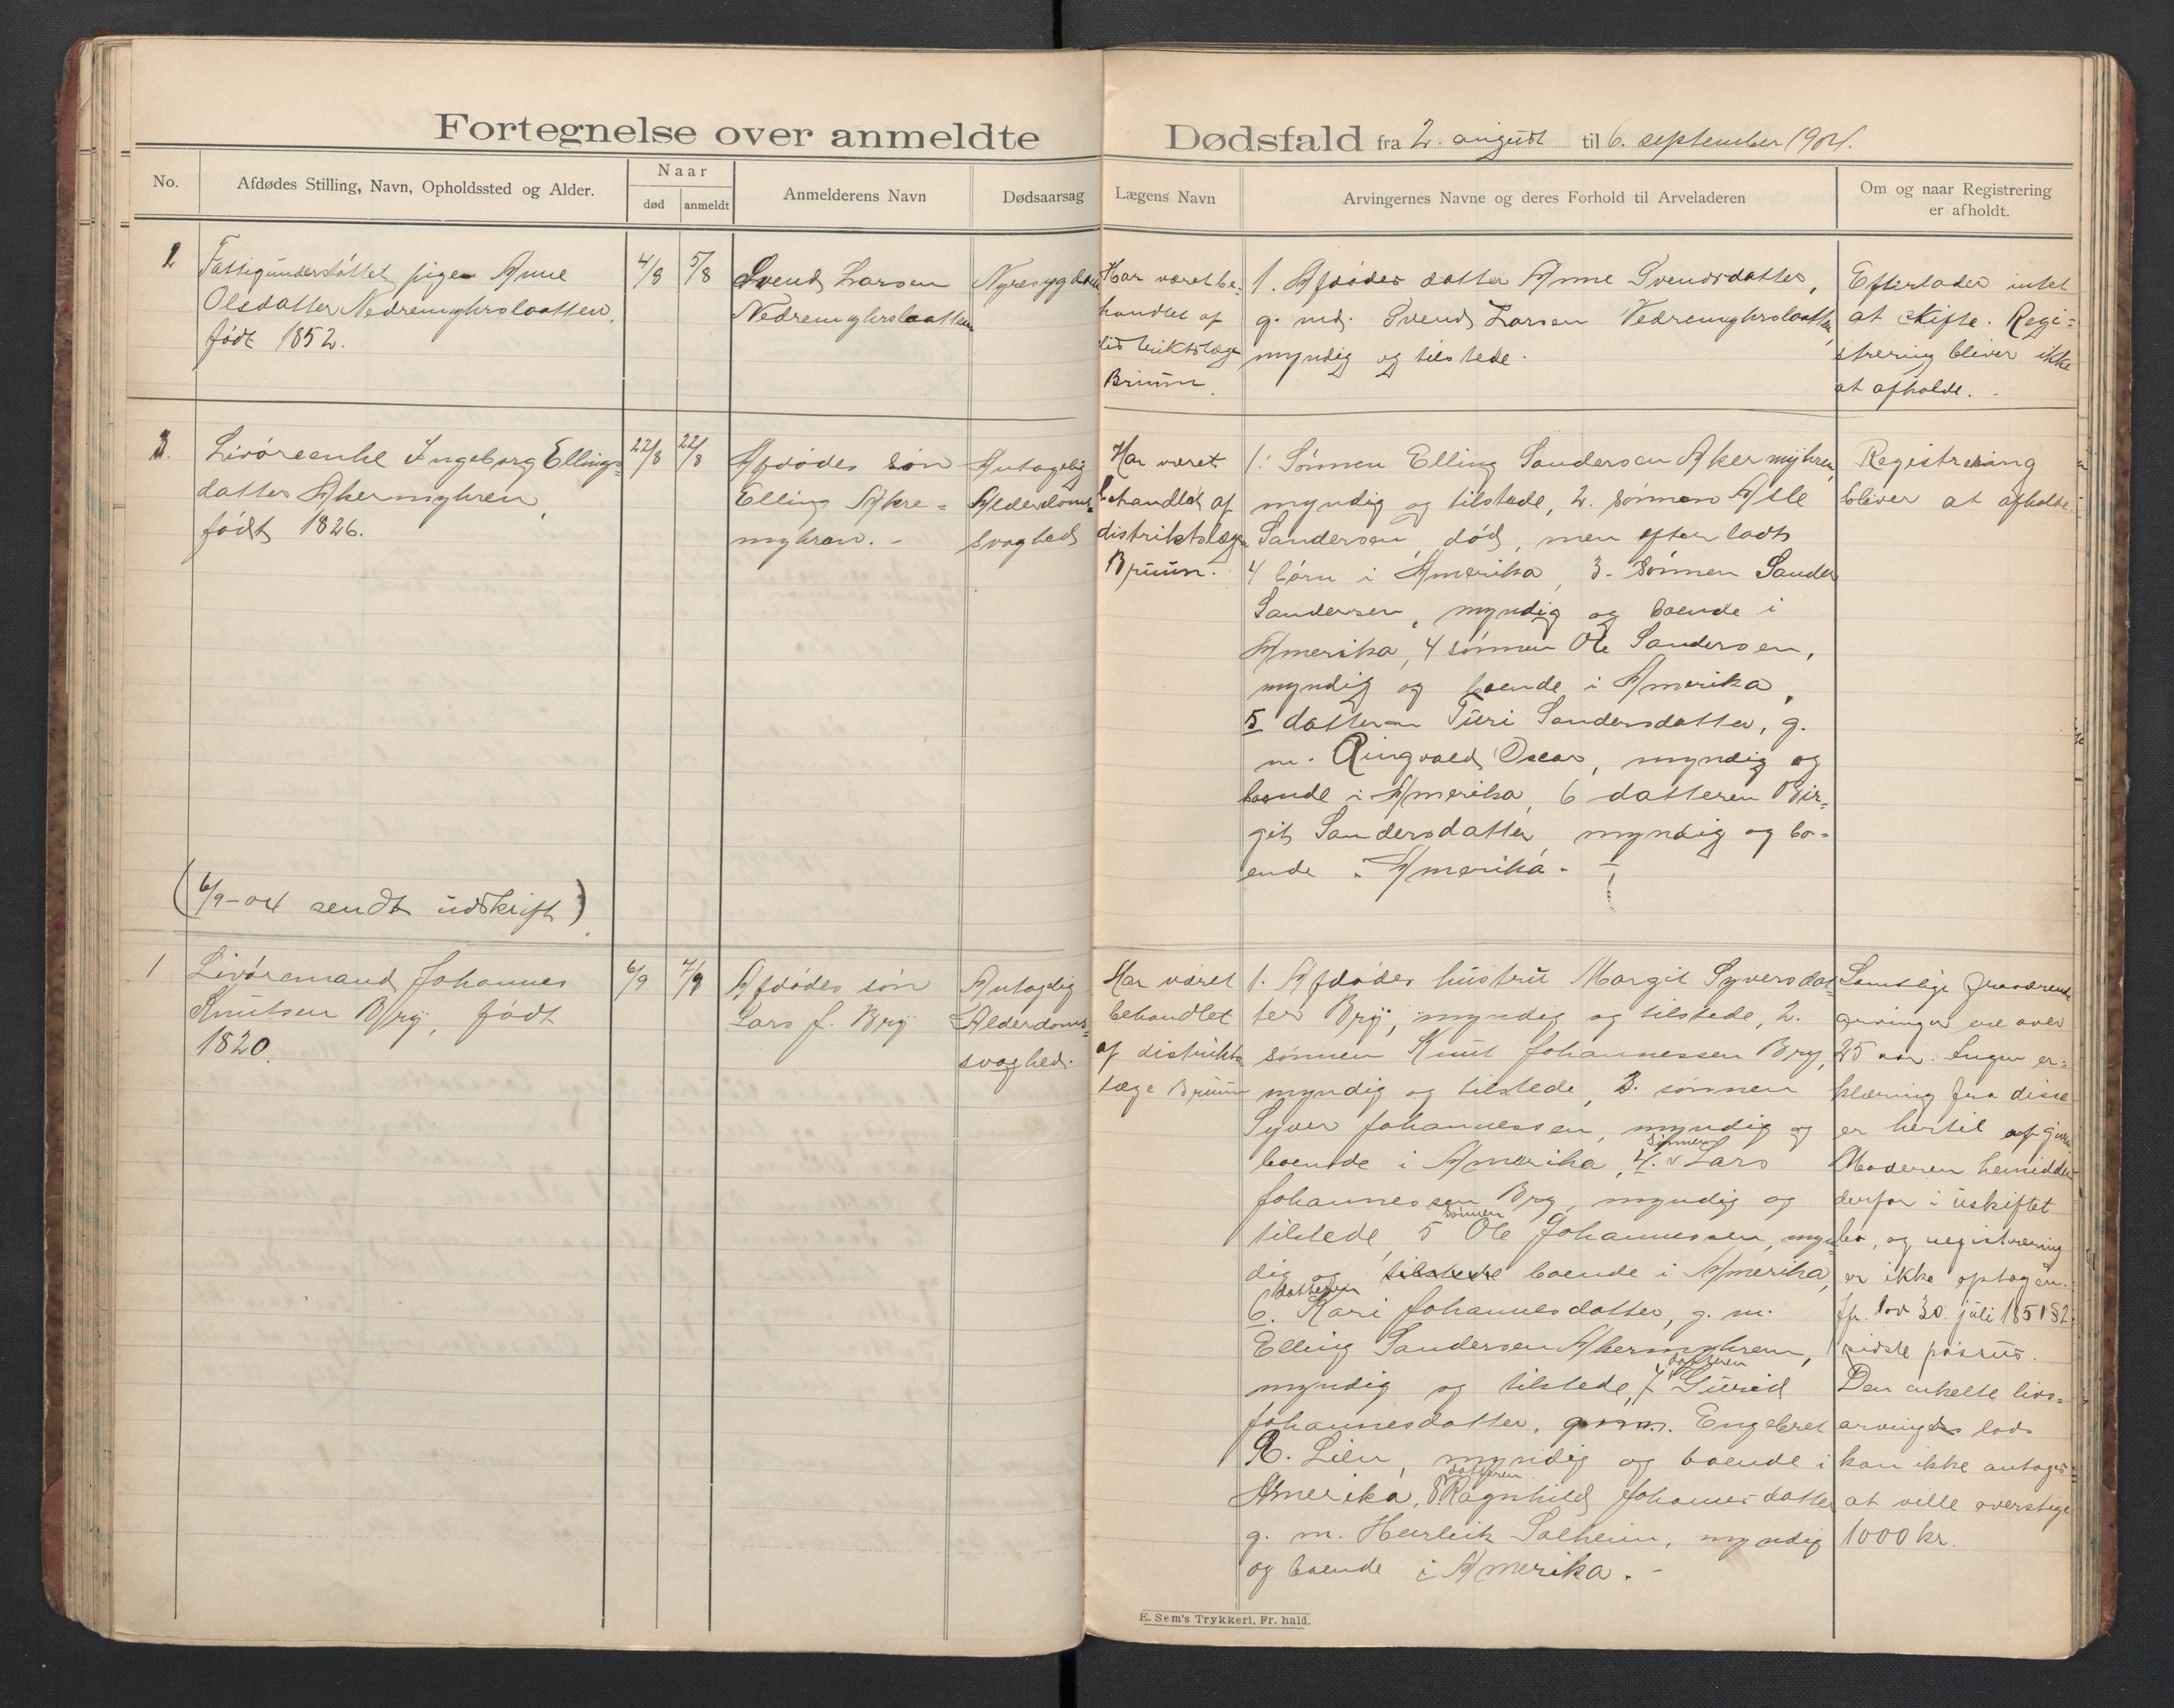 Fortegnelse over anmeldte Dødsfald fra 2. august til 6. september 1904.
No.
Afdødes Stilling, Navn, Opholdssted og Alder.
Naar
død
anmeldt
Anmelderens Navn
Dødsaarsag
Lægens Navn
Arvingernes Navne og deres Forhold til Arveladeren
Om og naar Registrering
er afholdt.
2
Fattigunderstøttet pige Anne
Olsdatter Nedremyhrslaatten,
født 1852.
4/8
5/8
Svend Larsen
Nedremyhrslaatten
Nyresygdom
Har været be-
handlet af
distriktslæge
Bruun.
1. Afdødes datter Anne Svendsdatter,
g. md. Svend Larsen Nedremyhrslaatten,
myndig og tilstede.
Efterlader intet
at skifte. Regi-
strering bliver ikke
at afholde.
3.
Livøreenke Ingeborg Ellings-
datter Akermyhren,
født 1826.
22/8
22/8
Afdødes søn
Elling Akre-
myhren. -
Antagelig
Alderdoms-
svaghed
Har været
behandlet af
distriktslæge
Bruun.
1. Sønnen Elling Sandersen Akermyhren,
myndig og tilstede, 2. sønnen Asle
Sandersen, død, men efterladt
4 børn i Amerika, 3. Sønnen Sander
Sandersen, myndig og boende i
Amerika, 4 sønnen Ole Sandersen,
myndig og boende i Amerika,
5 datteren Turi Sandersdatter, g.
m. Ringvald Oscar, myndig og
boende i Amerika, 6 datteren Bir-
git Sandersdatter, myndig og bo-
ende i Amerika. -
Registrering
bliver at afholde.
(6/9-04 sendt udskrift)
1
Livøremand Johannes
Knutsen Bry, født
1820.
6/9
7/9
Afdødes søn
Lars J. Bry
Antagelig
Alderdoms-
svaghed.
Har været
behandlet
af distrikts-
læge Bruun
1. Afdødes hustru Margit Syversdat-
ter Bry, myndig og tilstede, 2.
sønnen Knut Johannessen Bry,
myndig og tilstede, 3. sønnen
Syver Johannessen, myndig og
boende i Amerika, 4. sønnen Lars
Johannessen Bry, myndig og
tilstede, 5 sønnen Ole Johannessen, myn-
dig og tilstede boende i Amerika,
6. datteren Kari Johannesdatter, g. m.
Elling Sandersen Akermyhren,
myndig og tilstede, 7. datteren Gurid
Johannesdatter, g. m. Engebret
R. Lien, myndig og boende i
Amerika, 8 datteren Ragnhild Johannesdatter
g. m. Herleik Solheim, myndig
og boende i Amerika. -
Samtlige fraværende
arvinger ere over
25 aar. Ingen er-
klæring fra disse
er hertil afgiven.
Moderen hensidder
derfor i uskiftet
bo, og registrering
er ikke optagen.
Jfr. lov 30. juli 1851 § 2.
sidste passus.
Den enkelte livs-
arvings lod
kan ikke antages
at ville overstige
1000 kr.
E. Sem's Trykkeri, Fr. hald.